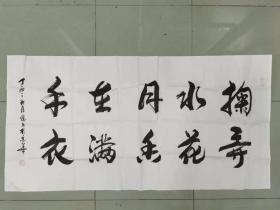 掬水月在手
弄花香满衣
丁酉